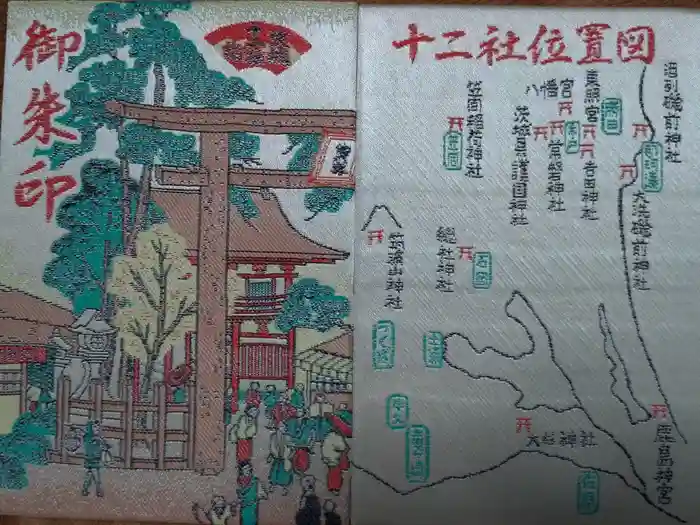 御朱印
十二社位置図
酒列磯前神社
東照宮
八幡宮
笠間稲荷神社
茨城県護国神社
常磐神社
吉田神社
水戸
笠間
大洗磯前神社
筑波山神社
總社神社
石岡
つくば
土浦
大杉神社
鹿島神宮